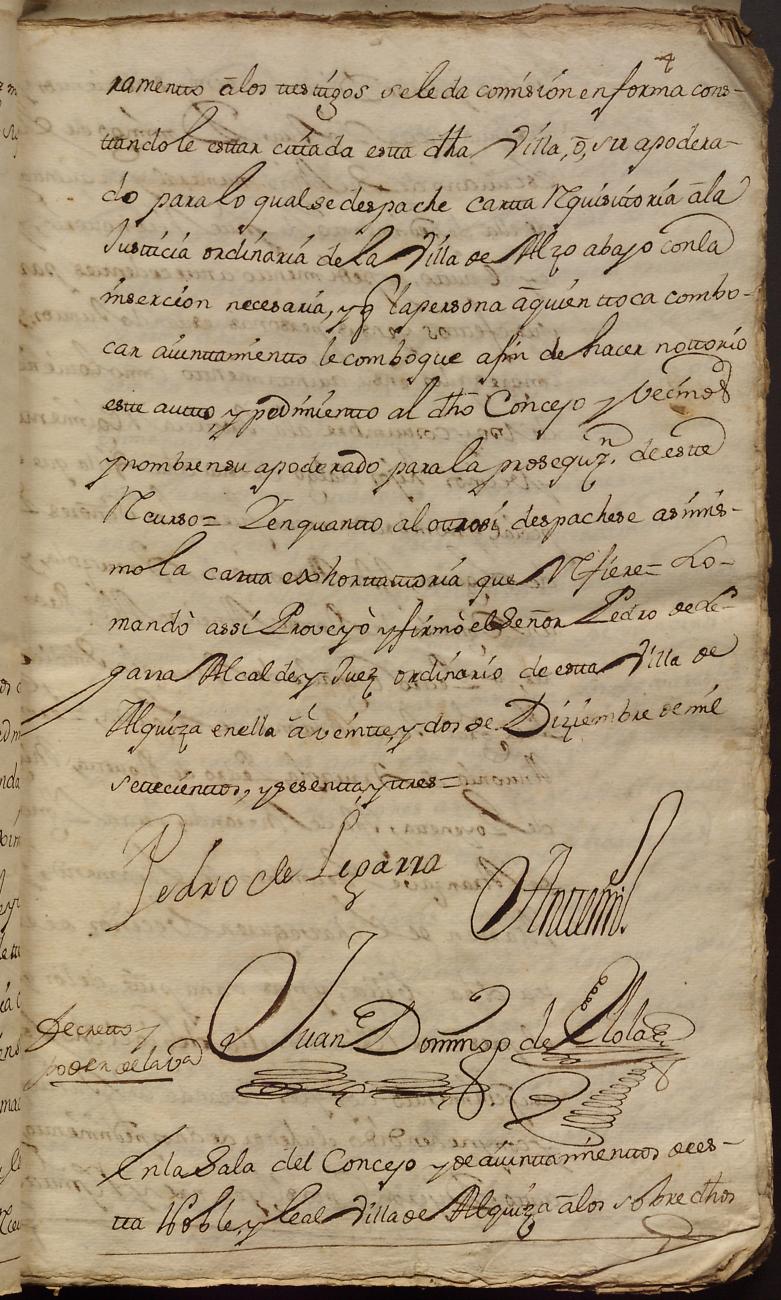 4
ramentto â los ttesttigos se le da comisión en forma cons-
ttandole esttar cittada estta dha Villa, ò, su apodera-
do para lo qual se despache cartta Rquisittoria â la
Justticia ordinaria de la Villa de Alzo abajo con la
insercion necesaria, y q̃ la persona â quien ttoca combo-
car aiunttamientto le comboque afin de hacer nottorio
estte autto, y pedimientto al dho Concejo y Vecinos
y nombren su apoderado para la prosequzn. de estte
Rcurso= Y en quantto al ottrosi despachese asimis-
mo la cartta exhorttattoria que Rfiere= Lo-
mandò assi Proveyò y firmò el Señor Pedro de Le-
garra Alcalde y Juez ordinario de estta Villa de
Alquiza en ella â veintte y dos de Diziembre de mil
settecienttos, y sesentta y ttres=
Pedro de Legarra
Anttemi
Juan Domingo de Elola
Decretto y
poder de la Va
En la Sala del Concejo y de aiunttamienttos de es-
tta Noble y Leal Villa de Alquiza â los sobre dhos